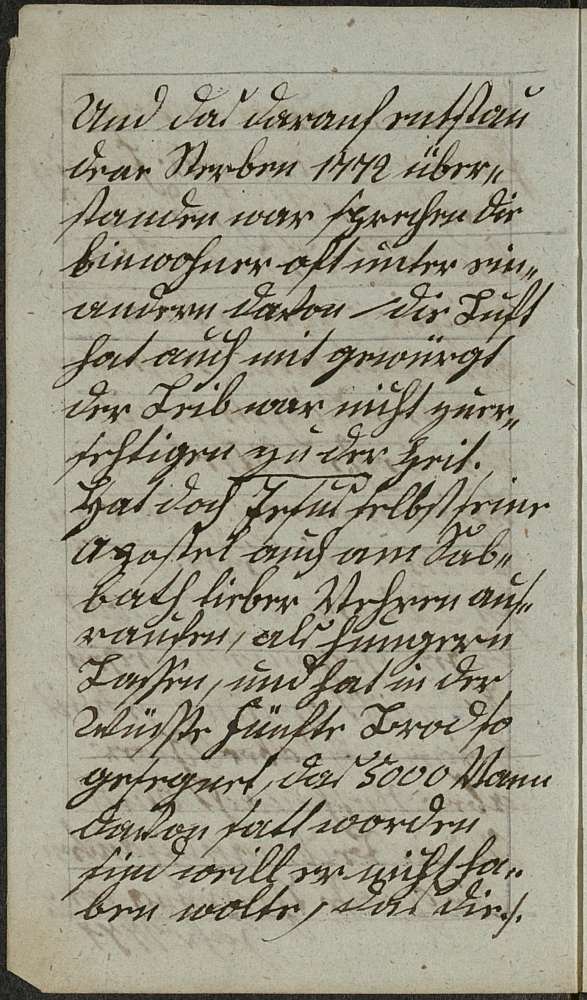 Und das darauf entstan
dene Sterben 1772 über„
standen war sprechen die
Einwohner oft unter ein„
andern davon / die Luft
hat auch mit gewürgt
der Leib war nicht zuer„
settigen zu der Zeit.
Hat doch Jesus selbst seine
Apostel auch am Sab„
bath lieber Aehren aus„
raufen, als hungern
Lassen, und hat in der
Wüste fünfte Brod so
gesegnet, das 5000 Mann
davon satt worden
sind weill er nicht ha„
ben wolte, das die./.